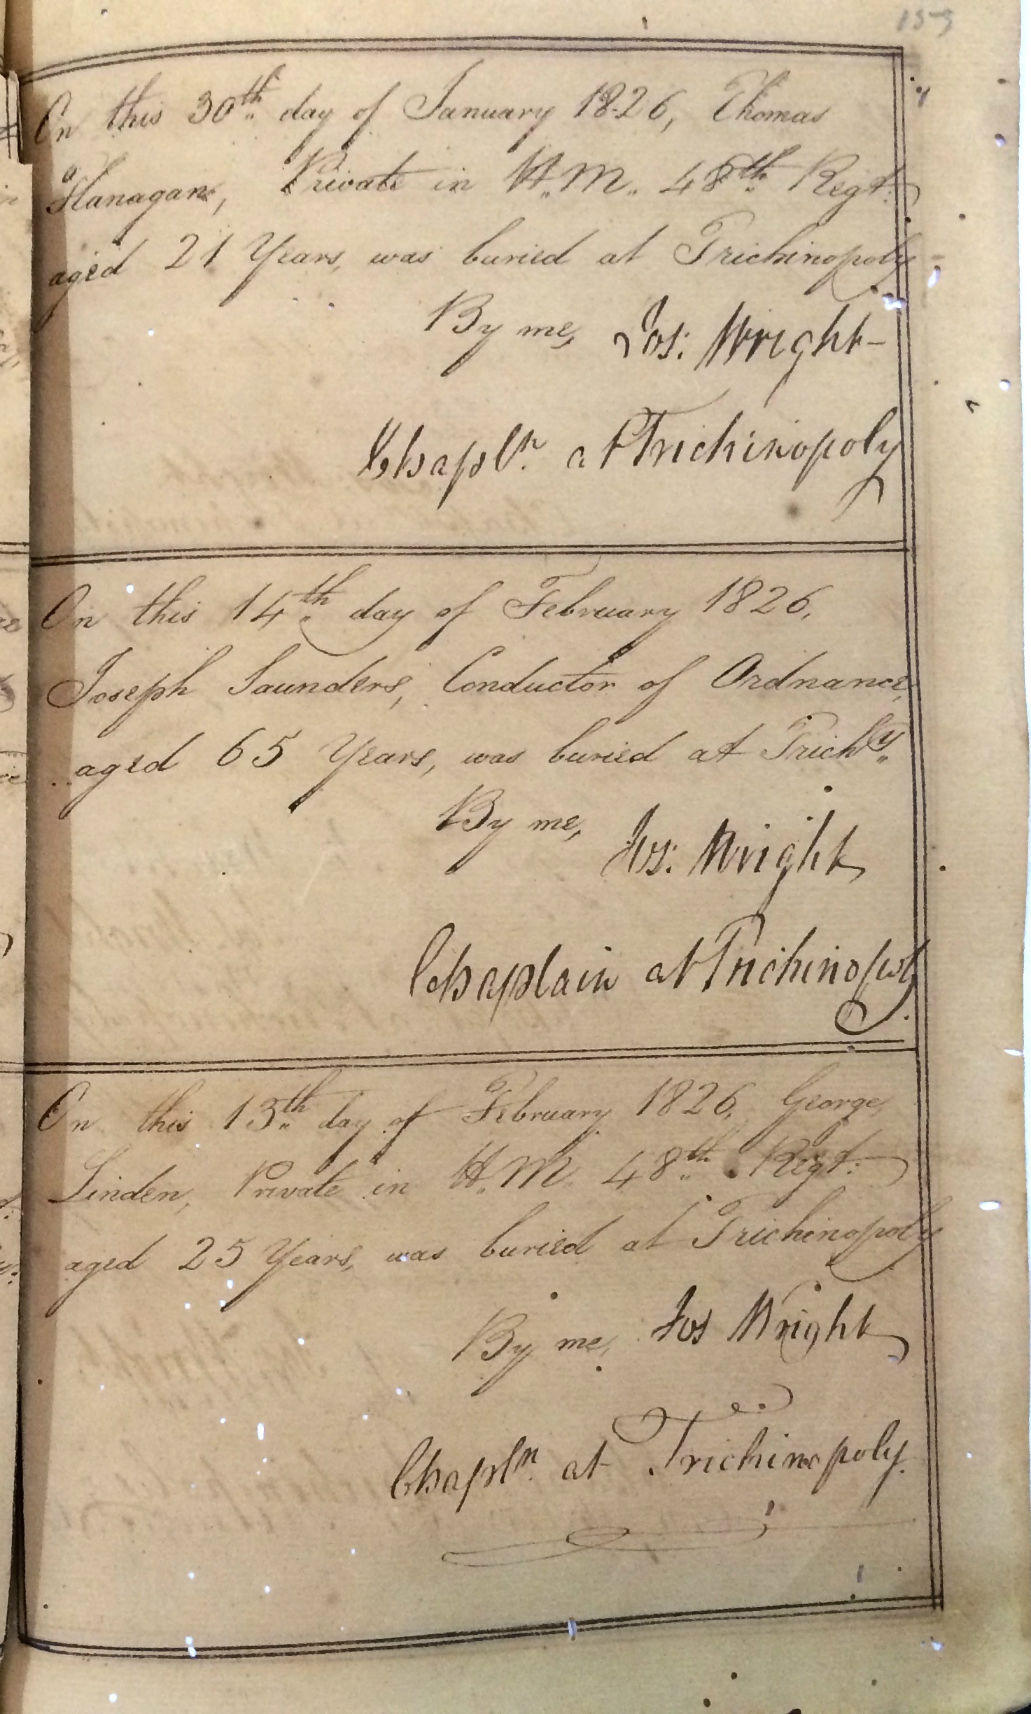 On this 30th day of January 1826, Thomas
Flanagan, Private in H.M. 48th Regt.
aged 21 Years, was buried at Trichinopoly
By me, Jos: Wright
Chapln. at Trichinopoly
On this 14th day of February 1826,
Joseph Saunders, Conductor of Ordnance,
aged 65 Years, was buried at Trichly.
By me, Jos: Wright
Chaplain at Trichinopoly.
On this 13th day of February 1826, George
Linden, Private in H.M. 48th Regt:
aged 25 Years, was buried at Trichinopoly
By me, Jos Wright
Chapln. at Trichinopoly.